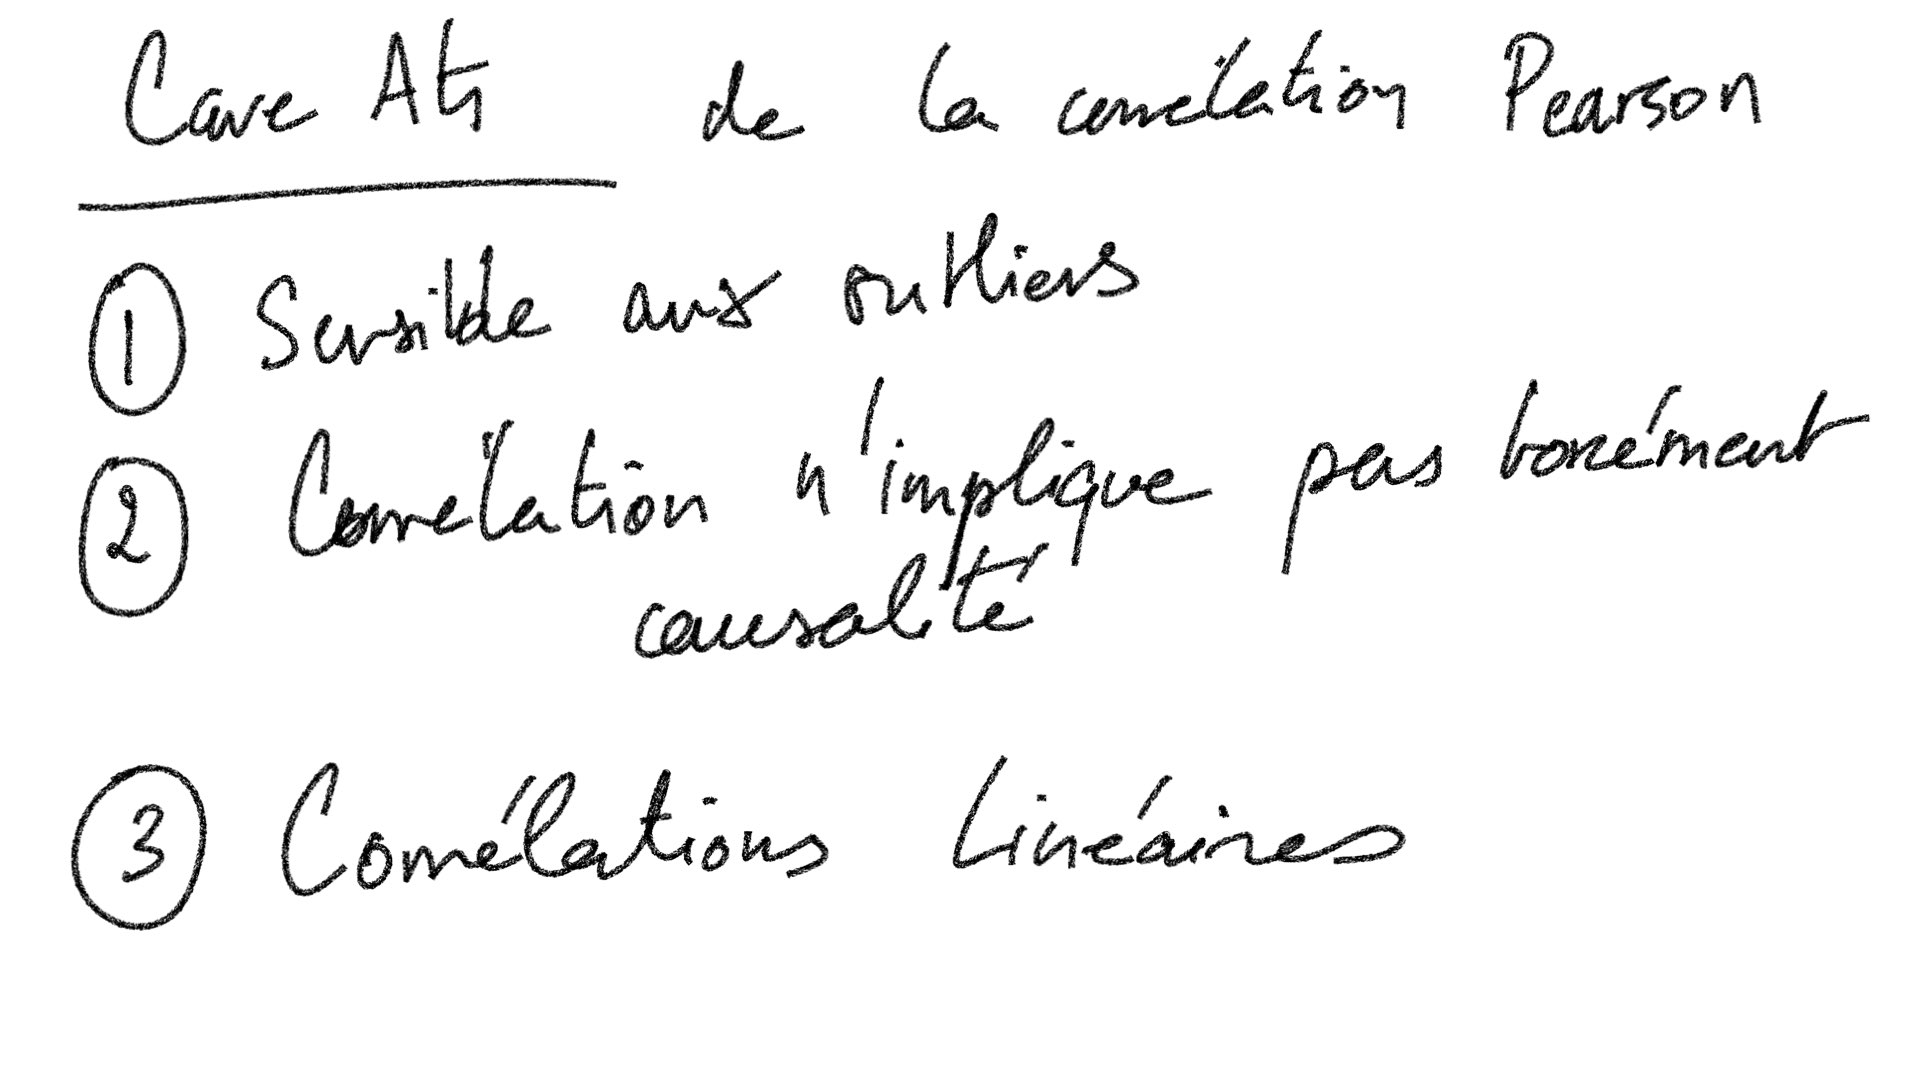 Cave Ats de la corrélation Pearson
① Sensible aux outliers
② Corrélation n'implique pas forcément
causalité
③ Corrélations Linéaires